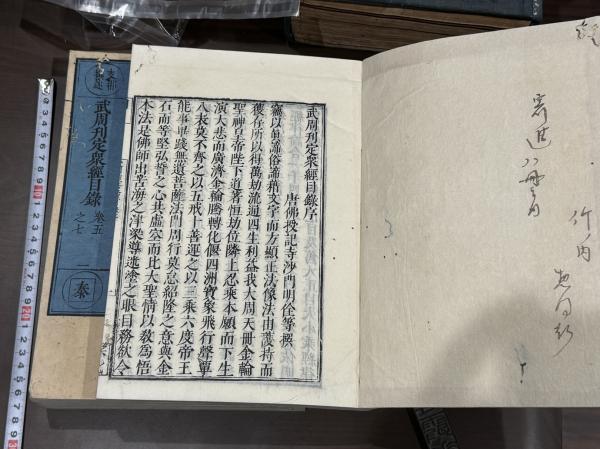 武周刊定衆經目錄序
唐佛授記寺沙門明佺等撰
竊以眞諦俗諦藉文字而方顯正法像法由護持而
獲存所以得萬劫流通四生利益我大周天冊金輪
聖神皇帝陛下道著恒劫位隣上忍乘本願而下生
演大悲而廣濟金輪騰轉化偃四洲寶象飛行聲覃
八表莫不齊之以五戒十善運之以三乘六度帝王
能事畢踐無遺菩薩法門周行莫怠紹隆之意與金
石而等堅弘誓之心共虛空而比大聖情以敎爲悟
本法是佛師出苦海之津梁導迷塗之眼目務欲令
武周刊定衆經目錄
卷五
之七
秦
竹内